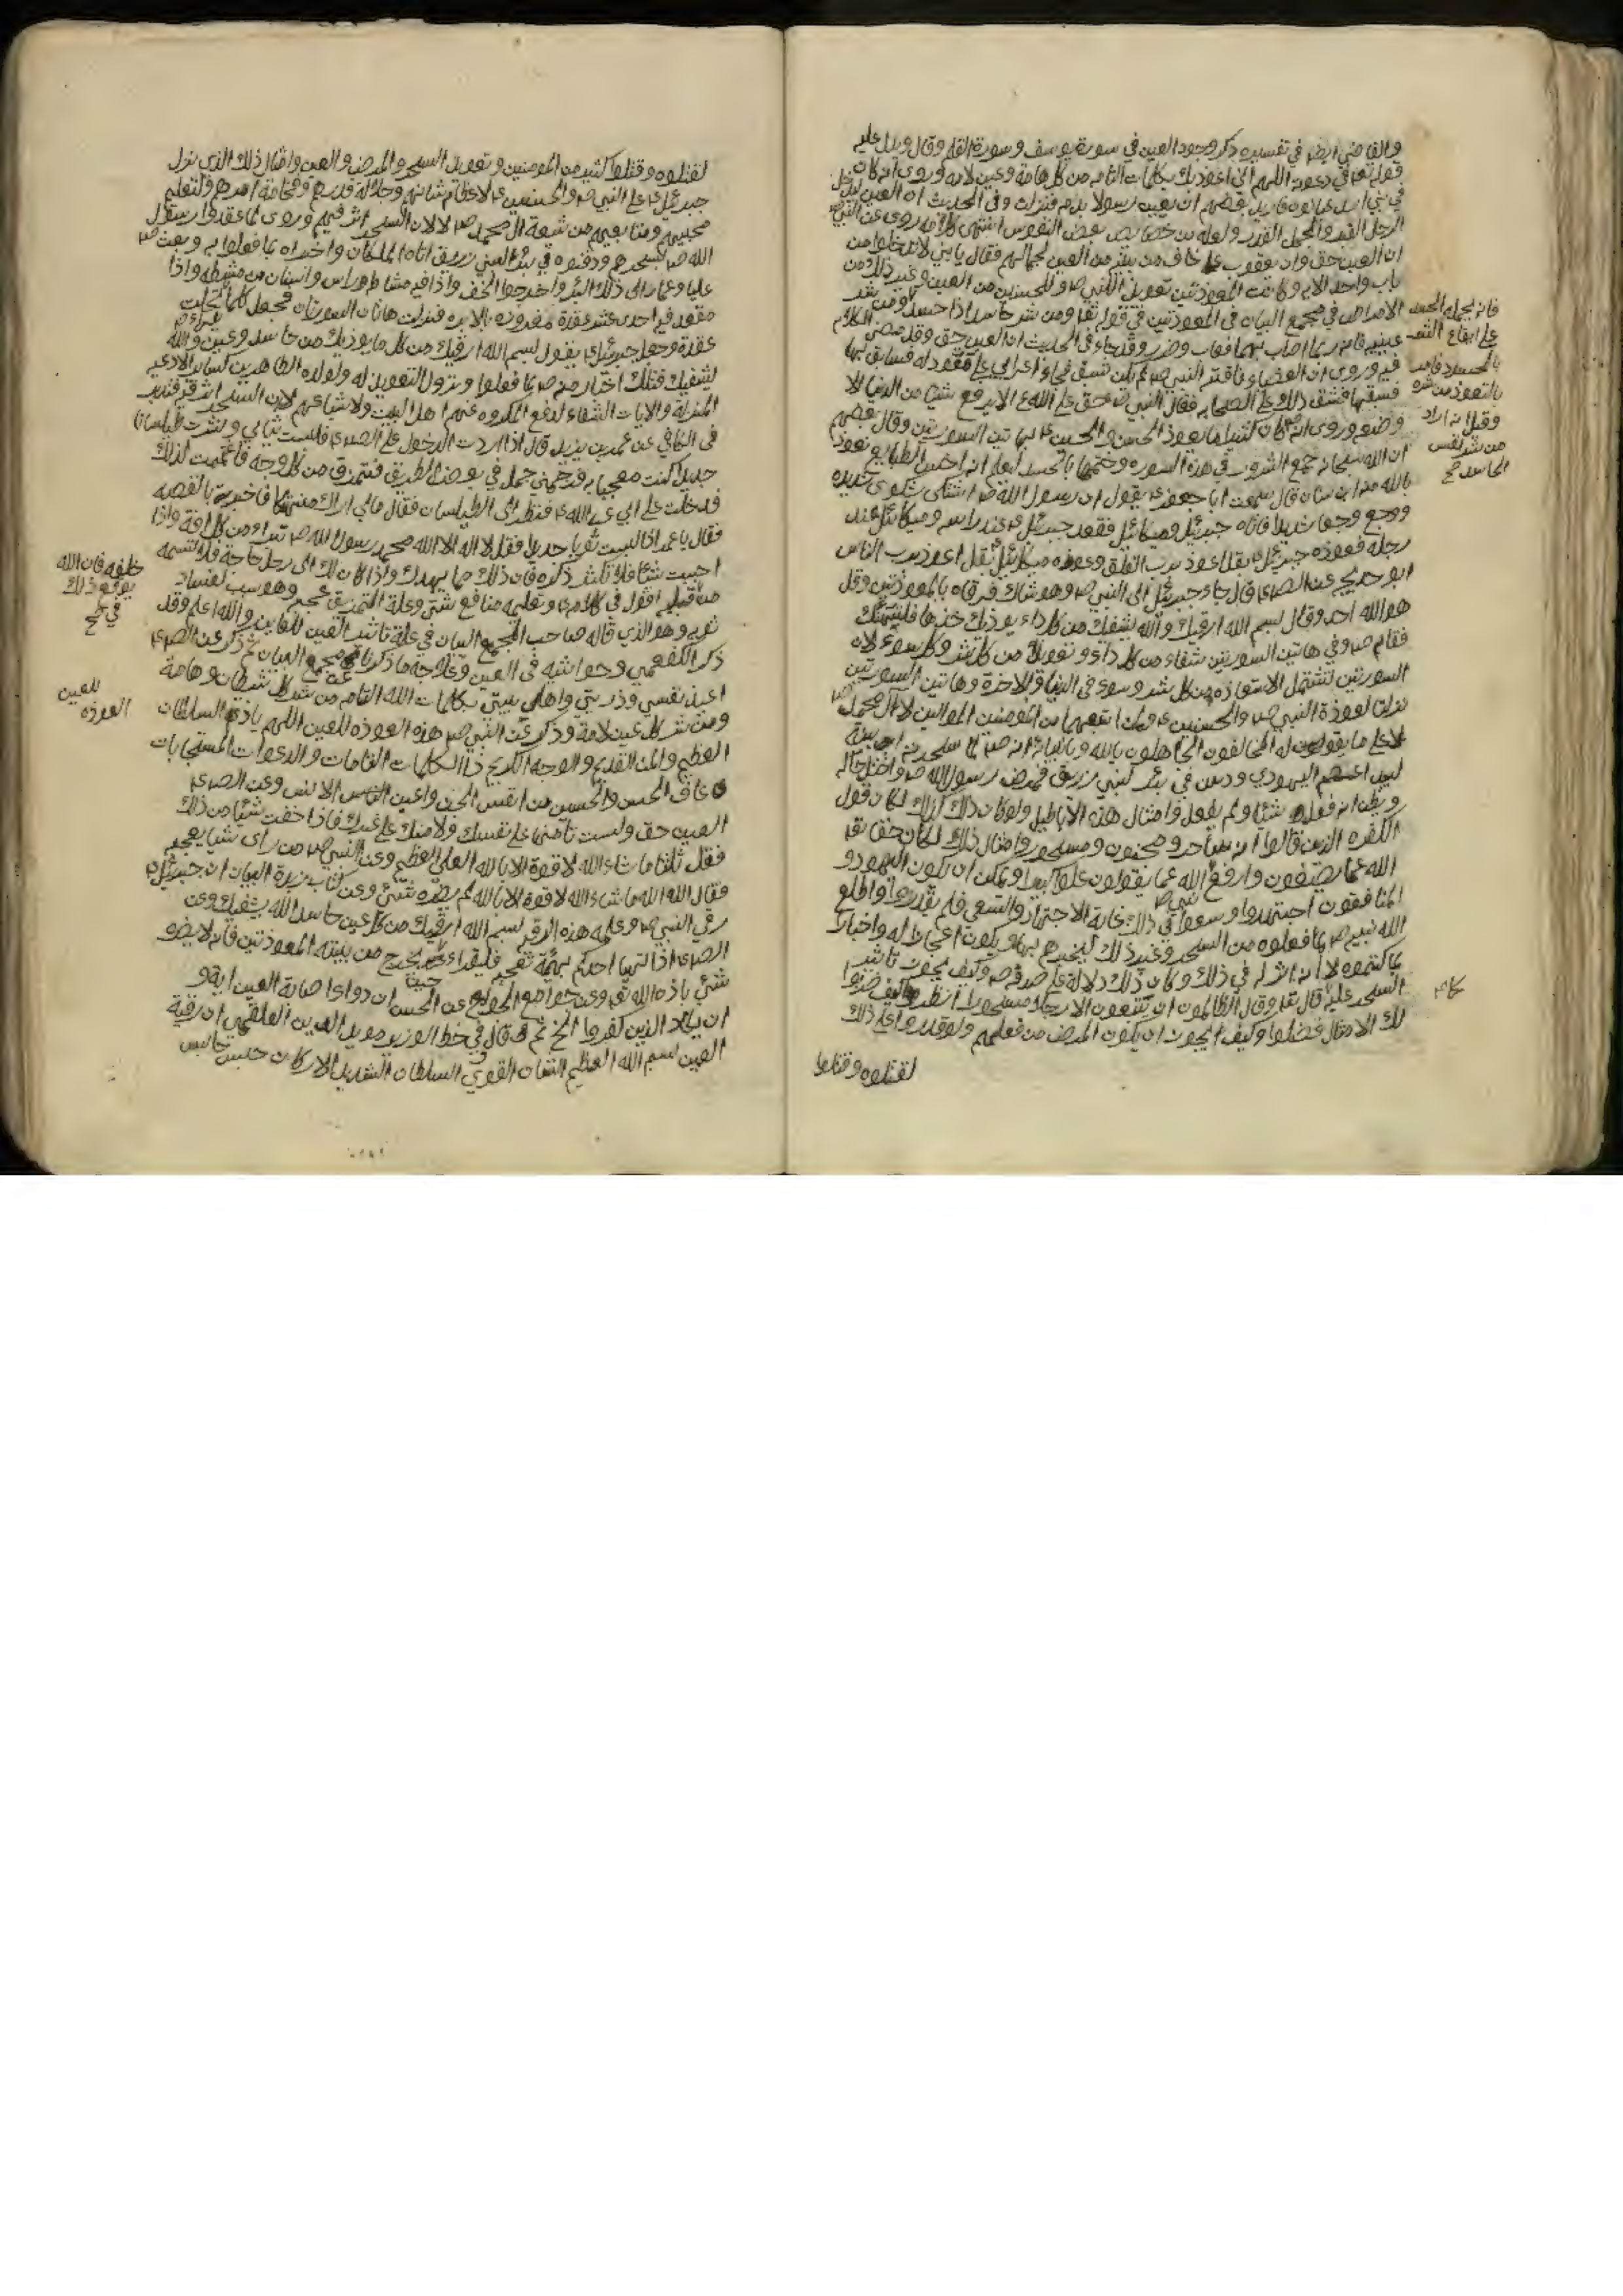 والقاضي ايضا في تفسيره ذكر وجود العين في سورة يوسف وسورة القلم وقال ويدل عليه
قوله في دعوته اللهم اني اعوذ بك بكلمات التامه من كل هامة وعين لامه وروى انه كان
في بني اسد عيانون فاريد بعضهم ان يعين رسولا فنزلت وفي الحديث ان العين ليدخل
الرجل القبر والجمل القدر ولعله من خصايص بعض النفوس انتهى كلامه روى عن النبي ص
ان العين حق وان يعقوب ع خاف من بنيه من العين لجمالهم فقال يا بني لا تدخلوا من
باب واحد الايه وكانت المعوذتين تعويذ النبي ص وللحسنين من العين وغير ذلك من
الامراض في مجمع البيان في المعوذتين في قوله تعا ومن شر حاسد اذا حسد او من شر
عينيه فانه ربما اصاب بهما فعاب وضر وقد جاء في الحديث ان العين حق وقد مضى الكلام
فيه وروى ان العضباء ناقة النبي ص لم تكن تسبق فجاء اعرابي على قعود له فسابق بها
فسبقها فشق ذلك على الصحابه فقال النبي ص حق على الله ع الا يرفع شيئا من الدنيا الا
وضعه وروى انه كان كثيرا ما يعوذ الحسن والحسين ع بهاتين السورتين وقال بعضهم
ان الله سبحانه جمع الشرور في هذه السوره وختمها بالحسد ليعلم انه اخس الطبايع نعوذ
بالله منه ابن سنان قال سمعت ابا جعفر ع يقول ان رسول الله ص اشتكى شكوى شديده
ووجع وجعا شديدا فاتاه جبرئيل وميكائيل فقعد جبرئيل ع عند راسه وميكائيل عند
رجليه فعوذه جبرئيل بقل اعوذ برب الفلق وعوذه ميكائيل بقل اعوذ برب الناس
ابو خديجه عن الصه قال جاء جبرئيل الى النبي ص وهو شاك فرقاه بالمعوذتين وقل
هو الله احد وقال بسم الله ارقيك والله يشفيك من كل داء يوذيك خذها فليتهنك
فقام ص وفي هاتين السورتين شفاء من كل داء وتعويذا من كل شر وكل سوء لان
السورتين تشتمل الاستعاذه من كل شر وسوء في الدنيا والاخرة وهاتين السورتين
نزلتا لعوذة النبي ص والحسنين ع ولمن اتبعهما من المومنين الموالين لال محمد ص
لا على ما يقولون له المخالفون الجاهلون بالله وبانبيائه انه ص لما سحره ابن
لبيد اعصم اليهودي ودس في بئر لبني زريق فمرض رسول الله ص واختل حاله
ويظن انه فعل شيئا ولم يفعل وامثال هذه الاباطيل ولو كان ذلك كذلك لكان قول
الكفره الذين قالوا انه ساحر ومجنون ومسحور وامثال ذلك لكان حقا تعا
الله عما يصفون وارفع الله عما يقولون علوا كبيرا ويمكن ان يكون اليهود و
المنافقون اجتهدوا وسعوا في ذلك غاية الاجتهاد والسعي فلم يقدروا واطلع
الله نبيه ص بما فعلوه من السحر وغير ذلك ليخبرهم بها ويكون اعجازا له واخبارا
بما كتموه لا انه اثر له في ذلك وكان ذلك دلالة على صدقه ص وكيف يجوز تاثير
السحر عليه قال تعا وقال الظالمون ان تتبعون الا رجلا مسحورا انظر كيف ضربوا
لك الامثال فضلوا وكيف يجوز ان يكون المرض من فعلهم ولو قدروا على ذلك
لقتلوه وقتلوا
فانه يحمله الحسد
على ايقاع الشر
بالمحسود فامر
بالتعوذ من شره
وقيل انه اراد
من شر نفس
الحاسد صح
لقتلوه وقتلوا كثير من المومنين وتعويذ السحر والمرض والعين وامثال ذلك الذي نزل
جبرئيل ع على النبي ص والحسنين ع لاعظام شانهم وجلالة قدرهم وفخامة امرهم ولتعليم
محبيهم ومتابعيهم من شيعة ال محمد ص لا لان السحر اثر فيهم وروى لما عقدوا رسول
الله ص بسحرهم ودفنوه في بئر لبني زريق اتاه الملكان واخبراه بما فعلوا به وبعث ص
عليا وعمار الى ذلك البئر واخرجوا الجف واذا فيه مشاطة راس واسنان من مشطه واذا
معقد فيه احدى عشر عقدة مغروزه بالابره فنزلت هاتان السورتان فجعل كلما
عقدة وجعل جبرئيل ع يقول بسم الله ارقيك من كل ما يوذيك من حاسد وعين والله
يشفيك فتلك اخبار منه ص بما فعلوا ونزول التعويذ له ولولاده الطاهرين كساير الادعيه
المنزلة والايات الشفاء لدفع المكروه عنهم اهل البيت ولاشياعهم لا ان السحر اثر فيه فتدبر
في الكافي عن عمر بن يزيد قال اذا اردت الدخول على الصه ع فلبست ثيابي ونشرت طيلسانا
جديدا كنت معجبا به فزحمني جمل في بعض الطريق فتمزق من كل وجه فاغتممت لذلك
فدخلت على ابي عبد الله ع فنظر الى الطيلسان فقال مالي اراك منهتكا فاخبرته بالقصه
فقال يا عمر اذا لبست ثوبا جديدا فقل لا اله الا الله محمد رسول الله ص تبراء من كل افة واذا
احببت شيئا فلا تكثر ذكره فان ذلك مما يهدك واذا كان لك الى رجل حاجة فلا تشتمه
من اقول في كلامه ع وتعليمه منافع شتى وعلة التمزيق عجبه وهو سبب لفساد
ثوبه وهو الذي قاله صاحب المجمع البيان في علة تاثير العين للعاين والله اعلم وقد
ذكر الكفعمي وحواشيه في العين وعلاجه ما ذكرناه مجمع البيان ثم ذكر عن الصه ع
اعيذ نفسي وذريتي واهل بيتي بكلمات الله التامه من شر كل شيطان وهامة
ومن شر كل عين لامة وذكر عن النبي ص هذه العوذه للعين اللهم يا ذا السلطان
العظيم والمن القديم والوجه الكريم ذا الكلمات التامات والدعوات المستجابات
عاف الحسن والحسين من انفس الجن واعين الانس وعن الصه ع
العين حق ولست تامنها على نفسك ولا منك على غيرك فاذا خفت شيئا من ذلك
فقل ثلثا ما شاء الله لا قوة الا بالله العلي العظيم وعن النبي ص من راى شيئا يعجبه
فقال الله الله ما شاء الله لا قوة الا بالله لم يضره شيئ وعن كتاب زبدة البيان ان جبرئيل ع
رقى النبي ص وعلمه هذه الرقيه بسم الله ارقيك من كل عين حاسد الله يشفيك وعن
الصه ع اذا تهيا احدكم بهيئة تعجبه فليقراء حين يخرج من بيته المعوذتين فانه لا يضره
شئي باذن الله تعا وعن جوامع الجامع عن الحسن ان دواء اصابة العين اية و
ان يكاد الذين كفروا الخ ثم قال في خط الوزير مويد الدين العلقمي ان رقية
العين بسم الله العظيم الشان القوي السلطان الشديد الاركان حبس حابس
خلفه فان الله
يوقع ذلك
في صح
للعين
العوذه